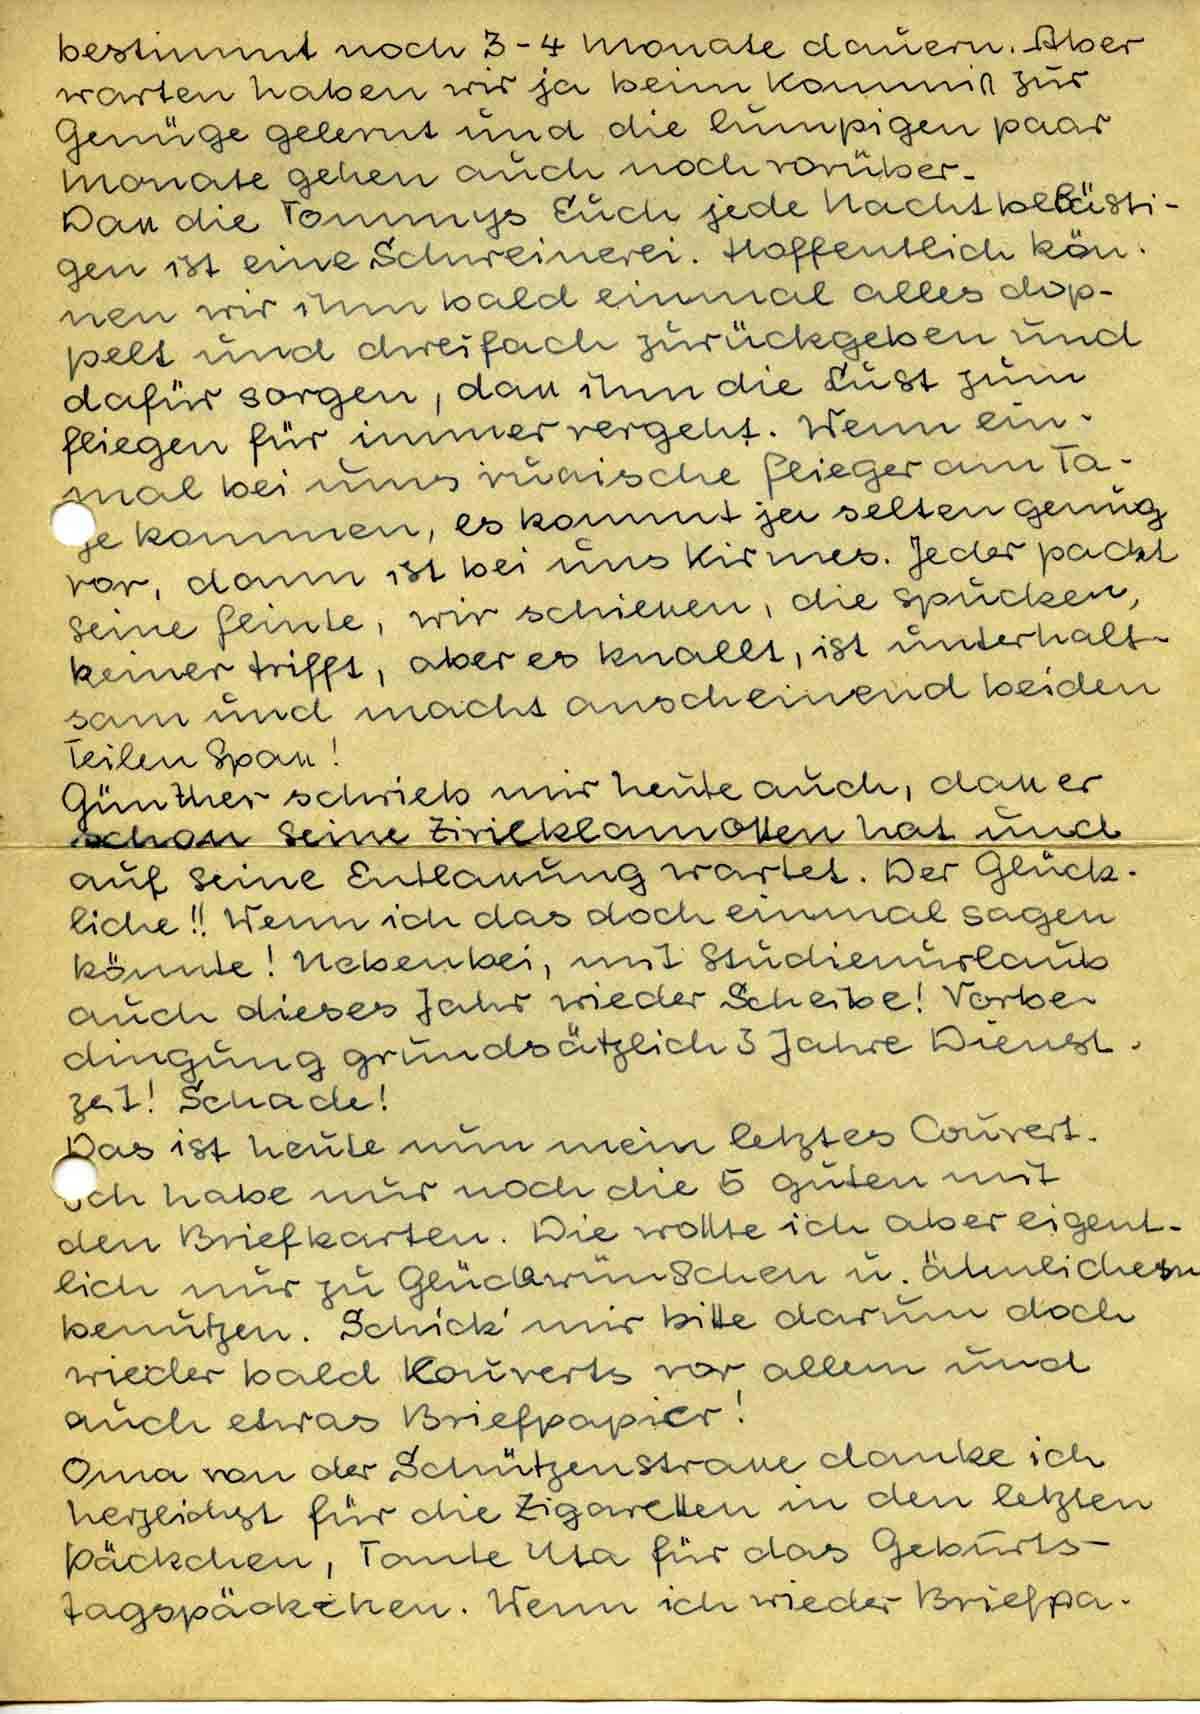 bestimmt noch 3-4 Monate dauern. Aber
warten haben wir ja beim Kommiß zur
Genüge gelernt und die lumpigen paar
Monate gehen auch noch vorüber.
Daß die Tommys Euch jede Nacht belästi-
gen ist eine Schweinerei. Hoffentlich kön-
nen wir ihm bald einmal alles dop-
pelt und dreifach zurückgeben und
dafür sorgen, daß ihm die Lust zum
fliegen für immer vergeht. Wenn ein-
mal bei uns rußische Flieger am Ta-
ge kommen, es kommt ja selten genug
vor, dann ist bei uns Kirmes. Jeder packt
seine Flinte, wir schießen, die spucken,
keiner trifft, aber es knallt, ist unterhalt-
sam und macht anscheinend beiden
Teilen Spaß!
Günther schrieb mir heute auch, daß er
schon seine Zivilklamotten hat und
auf seine Entlaßung wartet. Der Glück-
liche!! Wenn ich das doch einmal sagen
könnte! Nebenbei, mit Studienurlaub
auch dieses Jahr wieder Scheibe! Vorbe-
dingung grundsätzlich 3 Jahre Dienst-
zeit! Schade!
Das ist heute nun mein letztes Couvert.
Ich habe nur noch die 5 guten mit
den Briefkarten. Die wollte ich aber eigent-
lich nur zu Glückwünschen u. ähnlichem
benutzen. Schick' mir bitte darum doch
wieder bald Kouverts vor allem und
auch etwas Briefpapier!
Oma von der Schützenstraße danke ich
herzlichst für die Zigaretten in den letzten
Päckchen, Tante Uta für das Geburts-
tagspäckchen. Wenn ich wieder Briefpa-